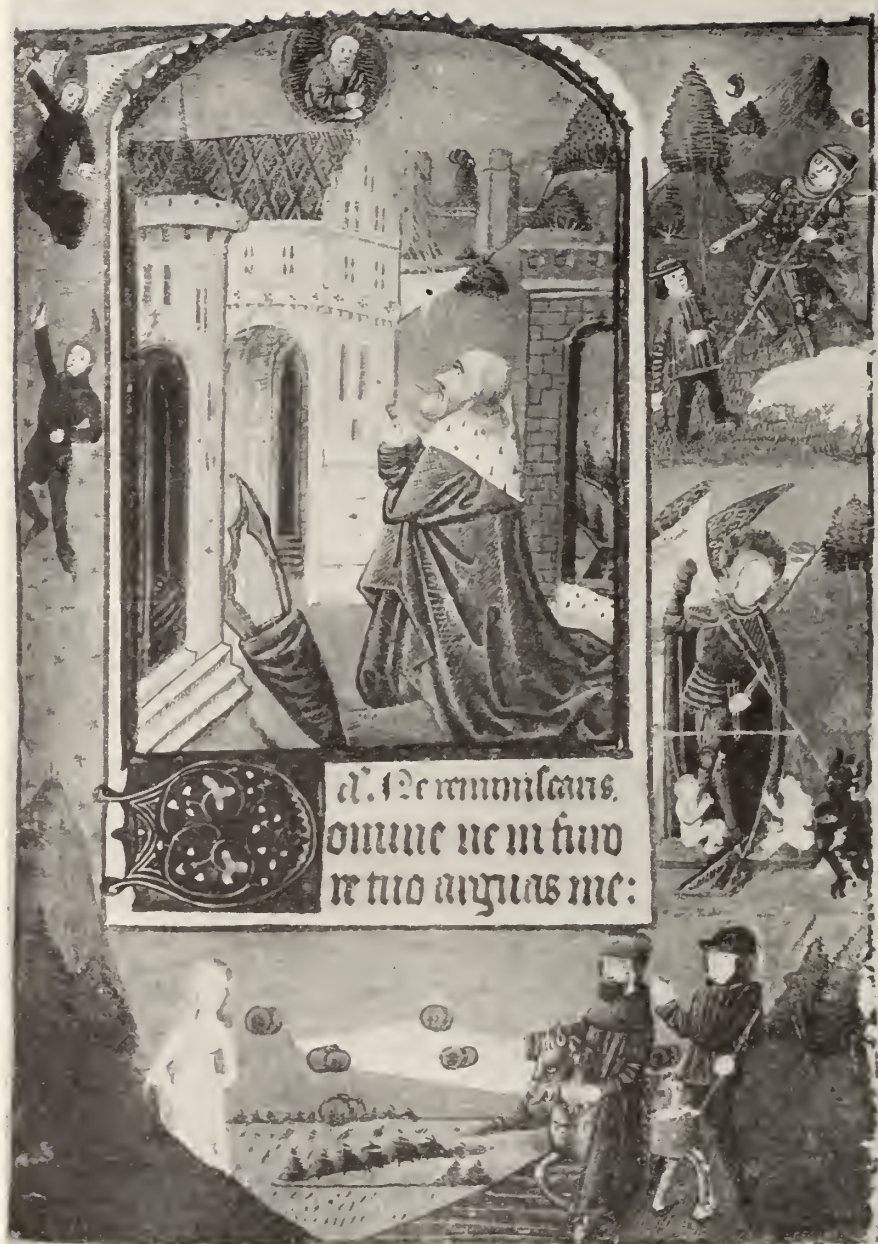 Ne reminiscaris.
omine ne in furo
re tuo arguas me: